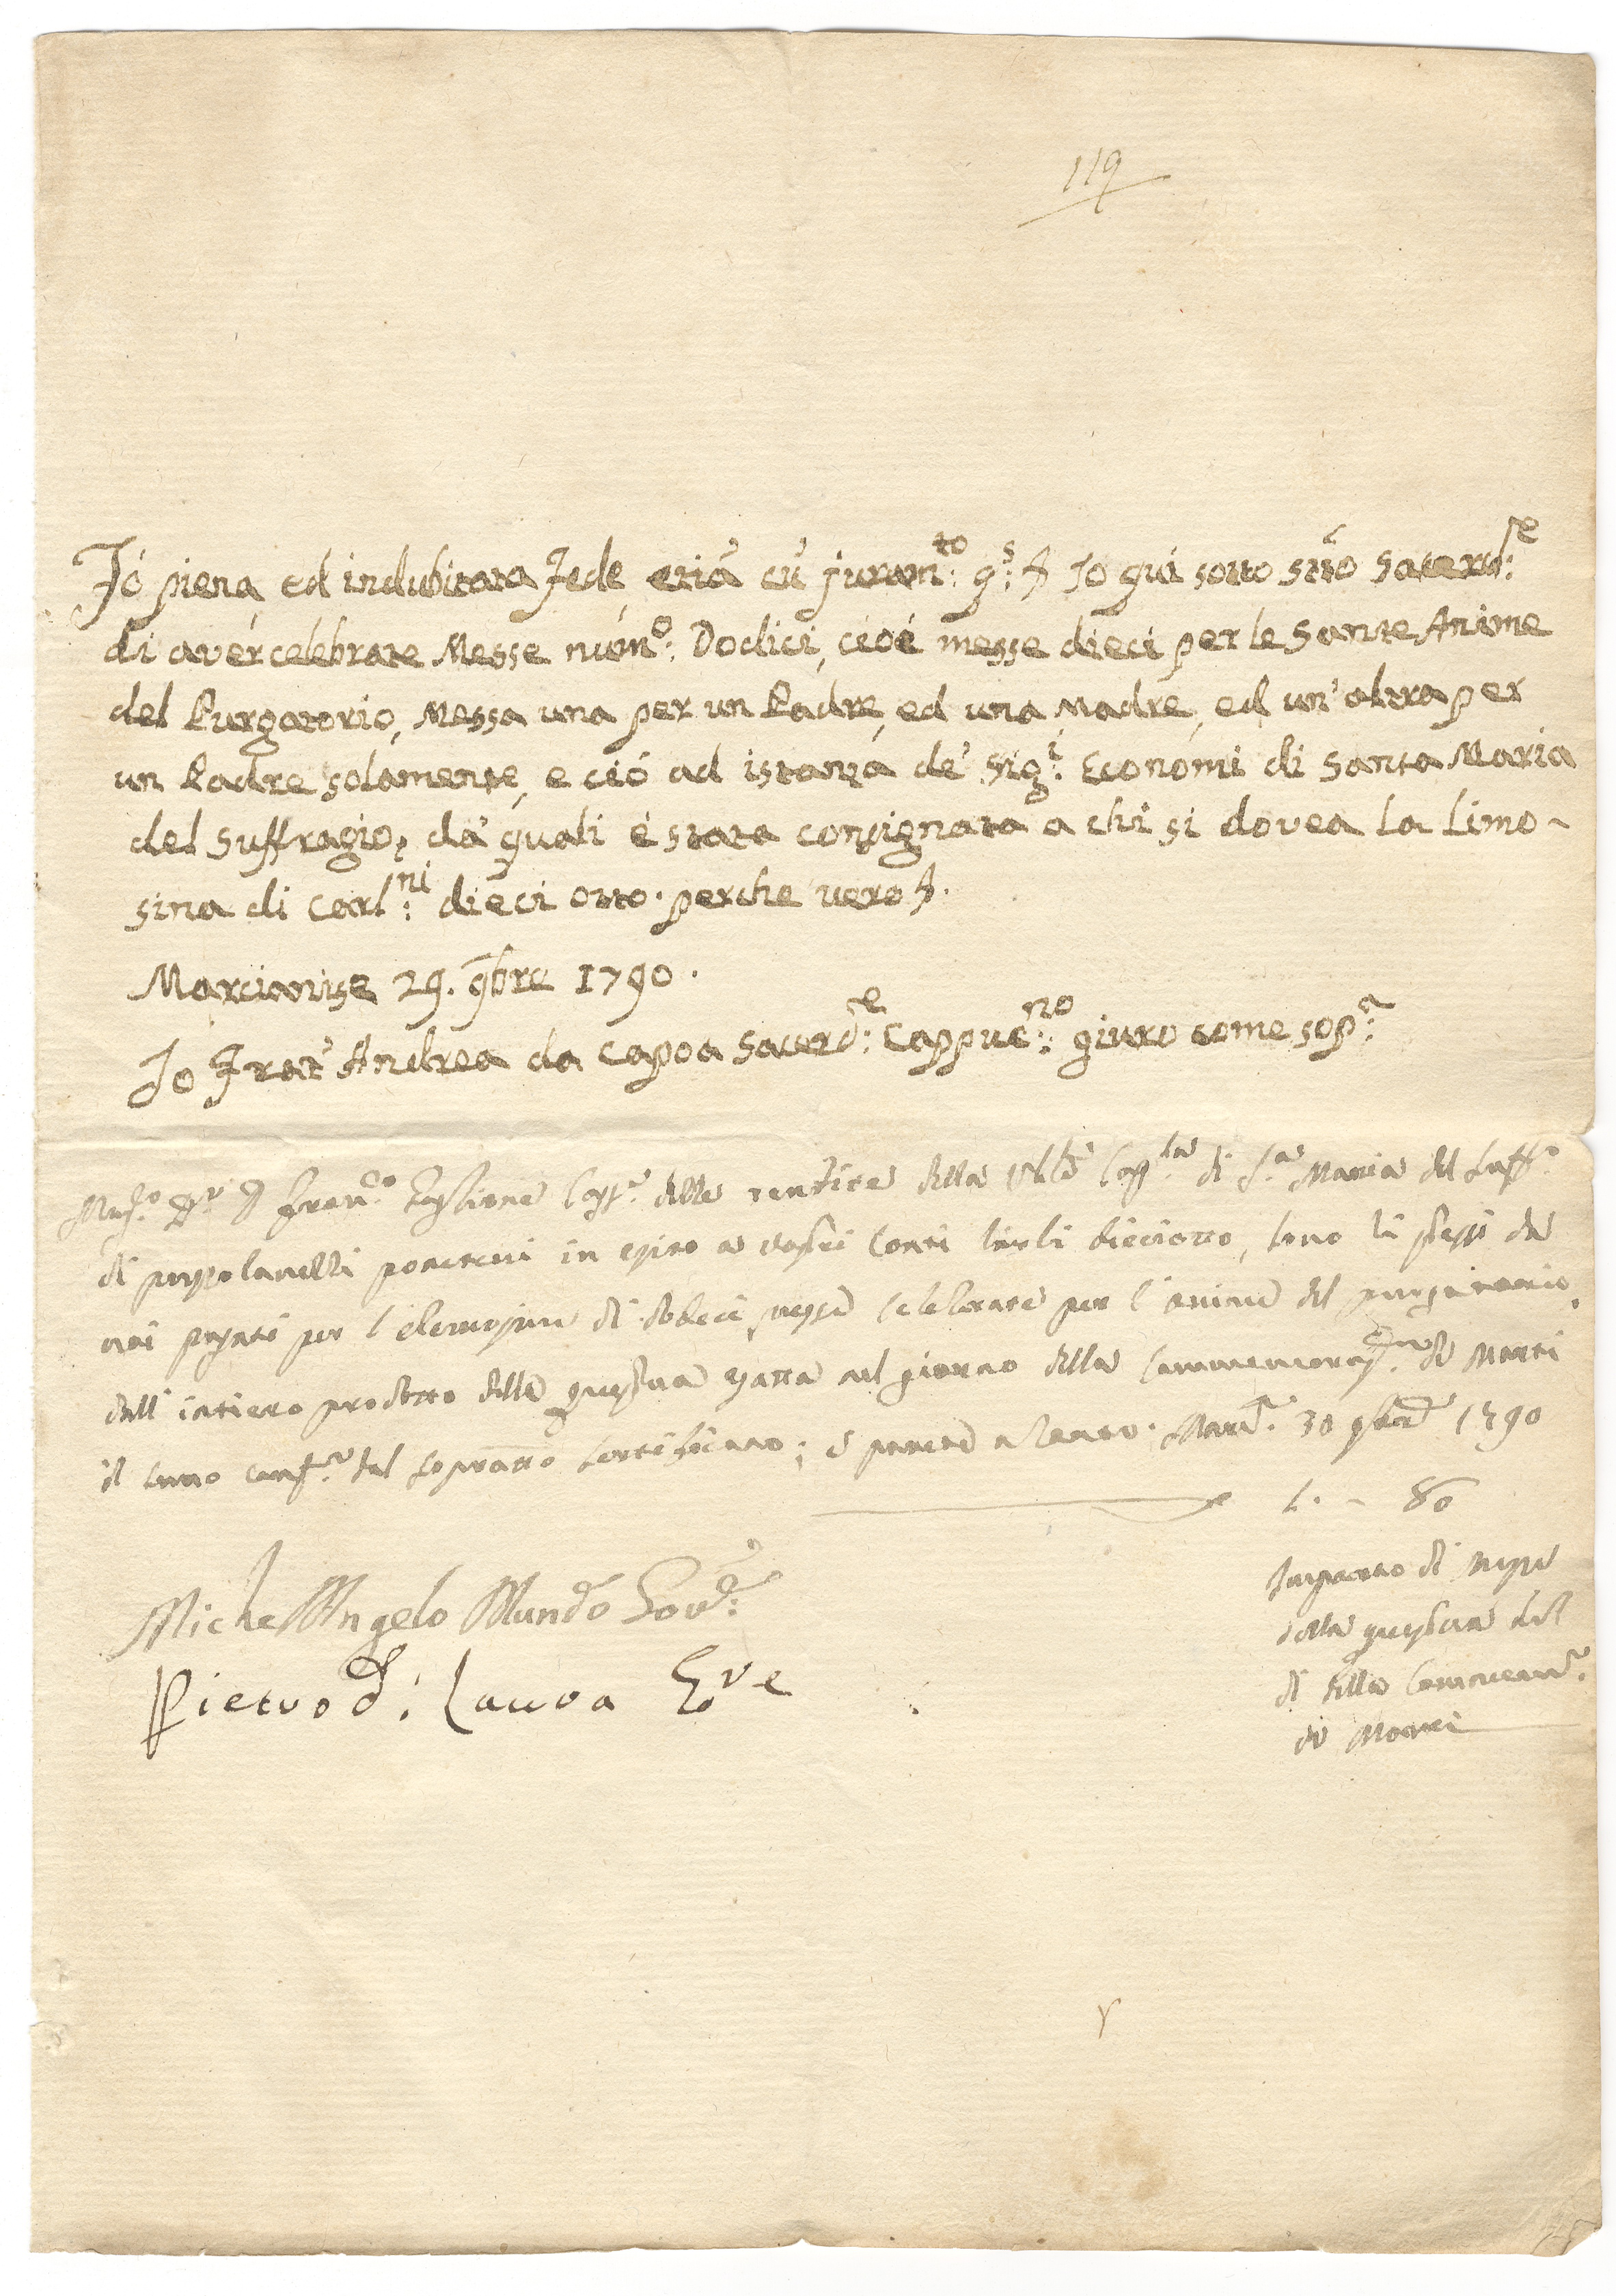 119
Fò piena, ed indubitata Fede, etiã cũ juram:to q:s Io quí sotto stto Sacerd:te
di avér celebrate Messe núm:o Dodici, cioé messe dieci per le Sante Anime
del Purgatorio, Messa una per un Padre, ed una Madre, ed un' altra per
un Padre solamente, e ció ad istanza de' Sig:i Economi di Santa Maria
del Suffragio, da' quali é stata consignata a chi si dovea la limo-
sina di Carl:ni dieci otto. perche vero
Marcianise 29. 9bre 1790.
Io Frat' Andrea da Capoa Sacerd:e Cappuc:no giuro come sop:a
Mag:co D:r D Fran:co delle rendite della Ven:le Capp:la di S:a Maria del Suff:o
di ponetevi in esito a vostri conti Carli dieciotto, sono li stessi da
noi pagati per l'elemosina di dodeci messe celebrate per l'anime del purgatorio,
dall' intiero prodotto della questua fatta nel giorno della Commemoraz:ne de Morti
il tutto conf:e dal soprãtto certificato; e Marc:e 30 9bre 1790
80
Michel'Angelo Mundo Gov:e
Pietro d: Laura Gov:e
Importo di messe
della questua del
dì della Commem:e
de Morti